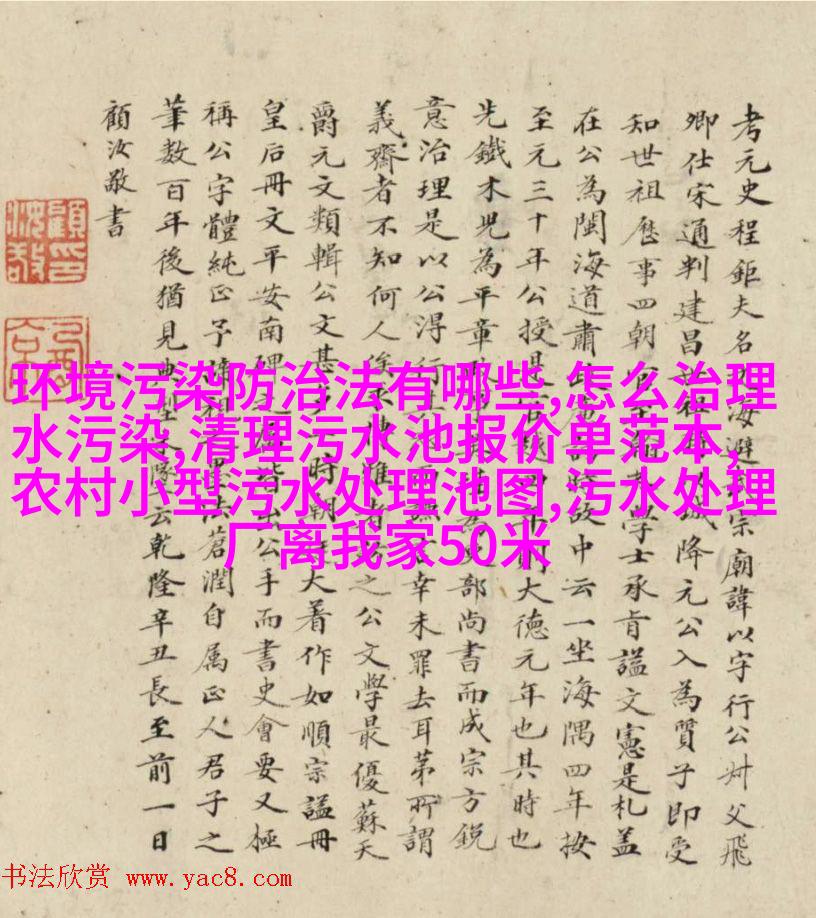 考元史程鉅夫名海避宗廟諱以字行公叔父飛
卿仕宋通判建昌城降元公入為質子即受
知世祖歷事四朝學士承旨諡文憲是札蓋
在公為閩海道肅時故中云一坐海隅四年按
至元三十年公授是官則大德元年也其時也
先鐵木兒為平章部尚書而成宗方銳
意治理是以公得行幸未罪去耳苐所謂
義齋者不知何人俟之公文學最優蘇天
爵元文類輯公文甚時朝大著作如順宗諡冊
皇后冊文平安南碑皆出公手而書史會要又極
稱公字體純正子法蒼潤自属正人君子之
筆數百年後猶見典型云乾隆辛丑長至前一日
顧汝敬書
环境污染防治法有哪些,怎么治理
水污染,清理污水池报价单范本,
农村小型污水处理池图,污水处理
厂离我家50米
书法欣赏 www.yac8.com